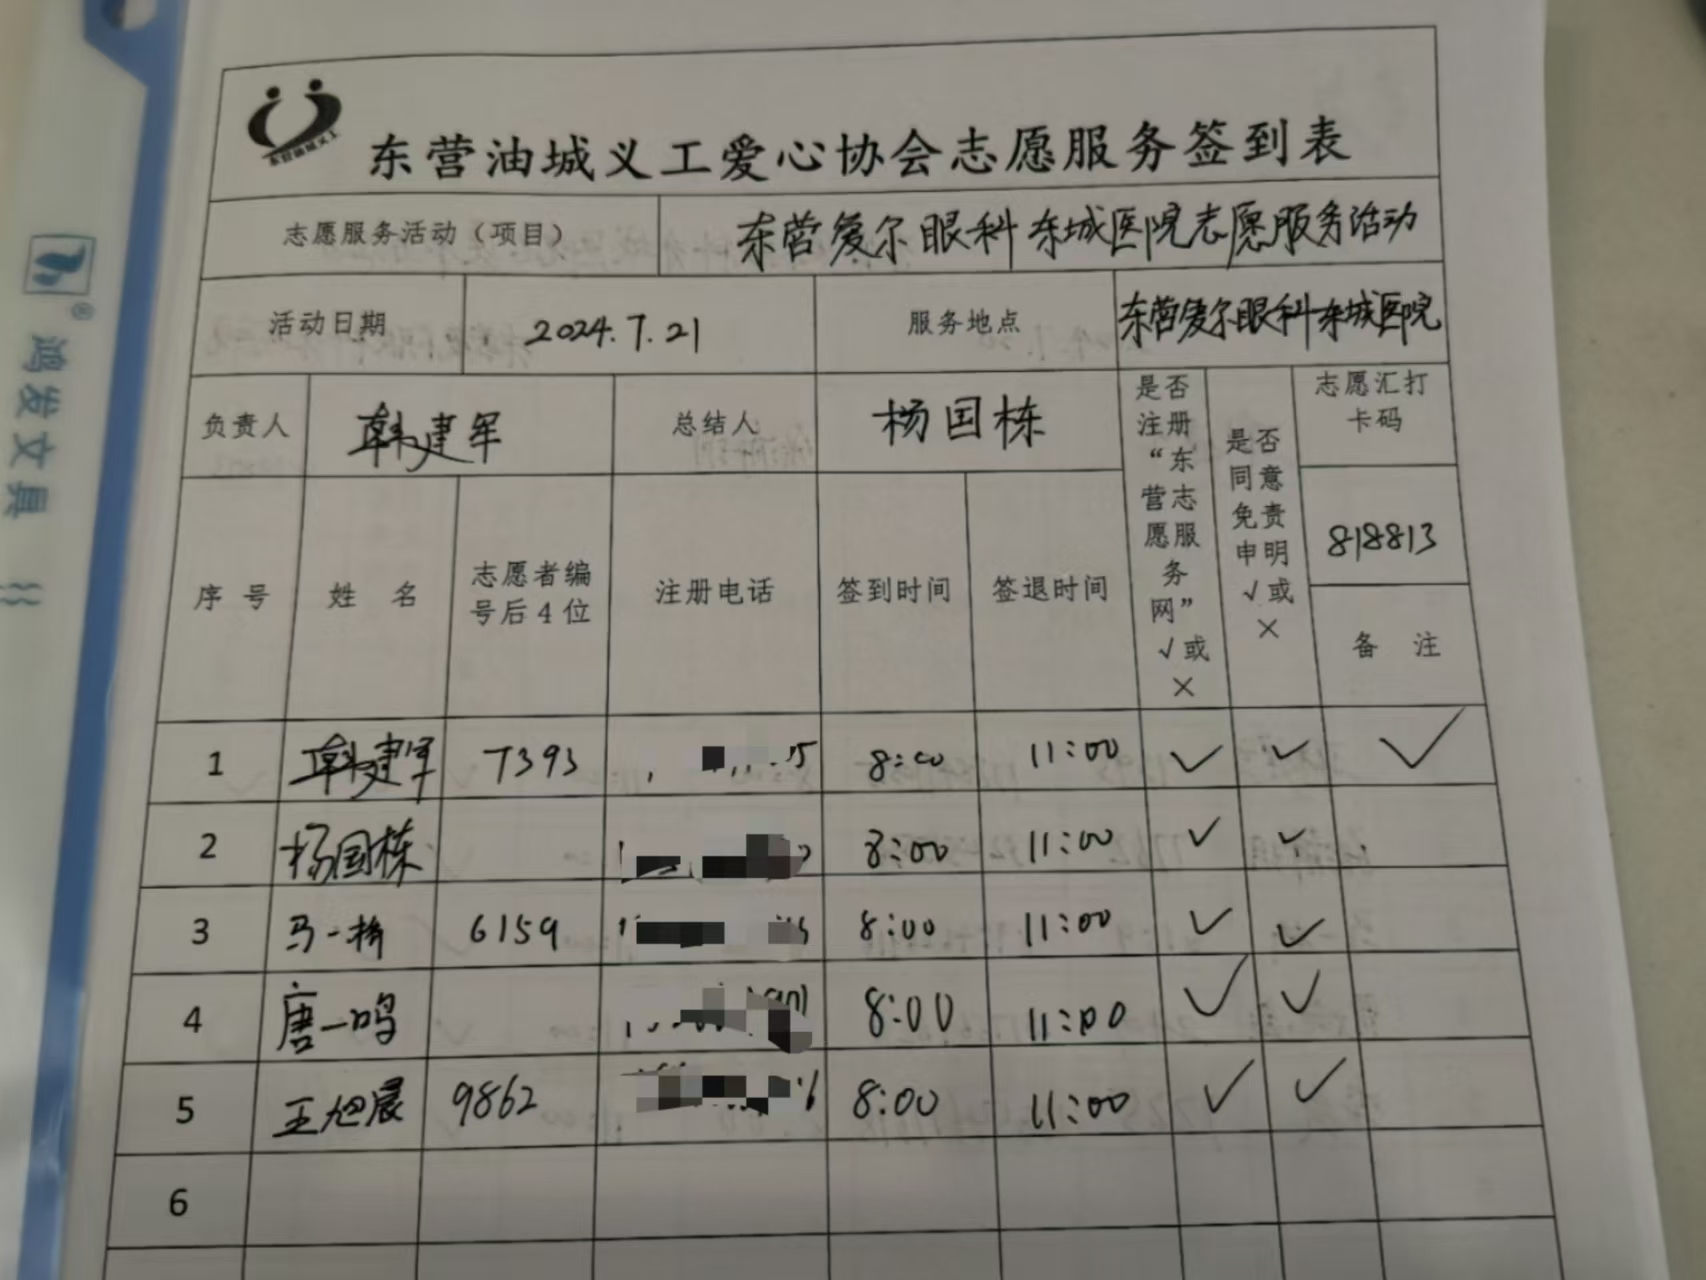 东营油城义工
东营油城义工爱心协会志愿服务签到表
志愿服务活动（项目） 东营爱尔眼科东城医院志愿服务活动
活动日期 2024.7.21 服务地点 东营爱尔眼科东城医院
负责人 韩建军 总结人 杨国栋 是否注册“东营志愿服务网”√或× 是否同意免责申明√或× 志愿汇打卡码
818813
序号 姓名 志愿者编号后4位 注册电话 签到时间 签退时间 备注
1 韩建军 7393 8:00 11:00 ✓ ✓ ✓
2 杨国栋 8:00 11:00 ✓ ✓
3 马一 6159 8:00 11:00 ✓ ✓
4 唐一鸣 8:00 11:00 ✓ ✓
5 王旭晨 9862 8:00 11:00 ✓ ✓
6
鸿发文具
®